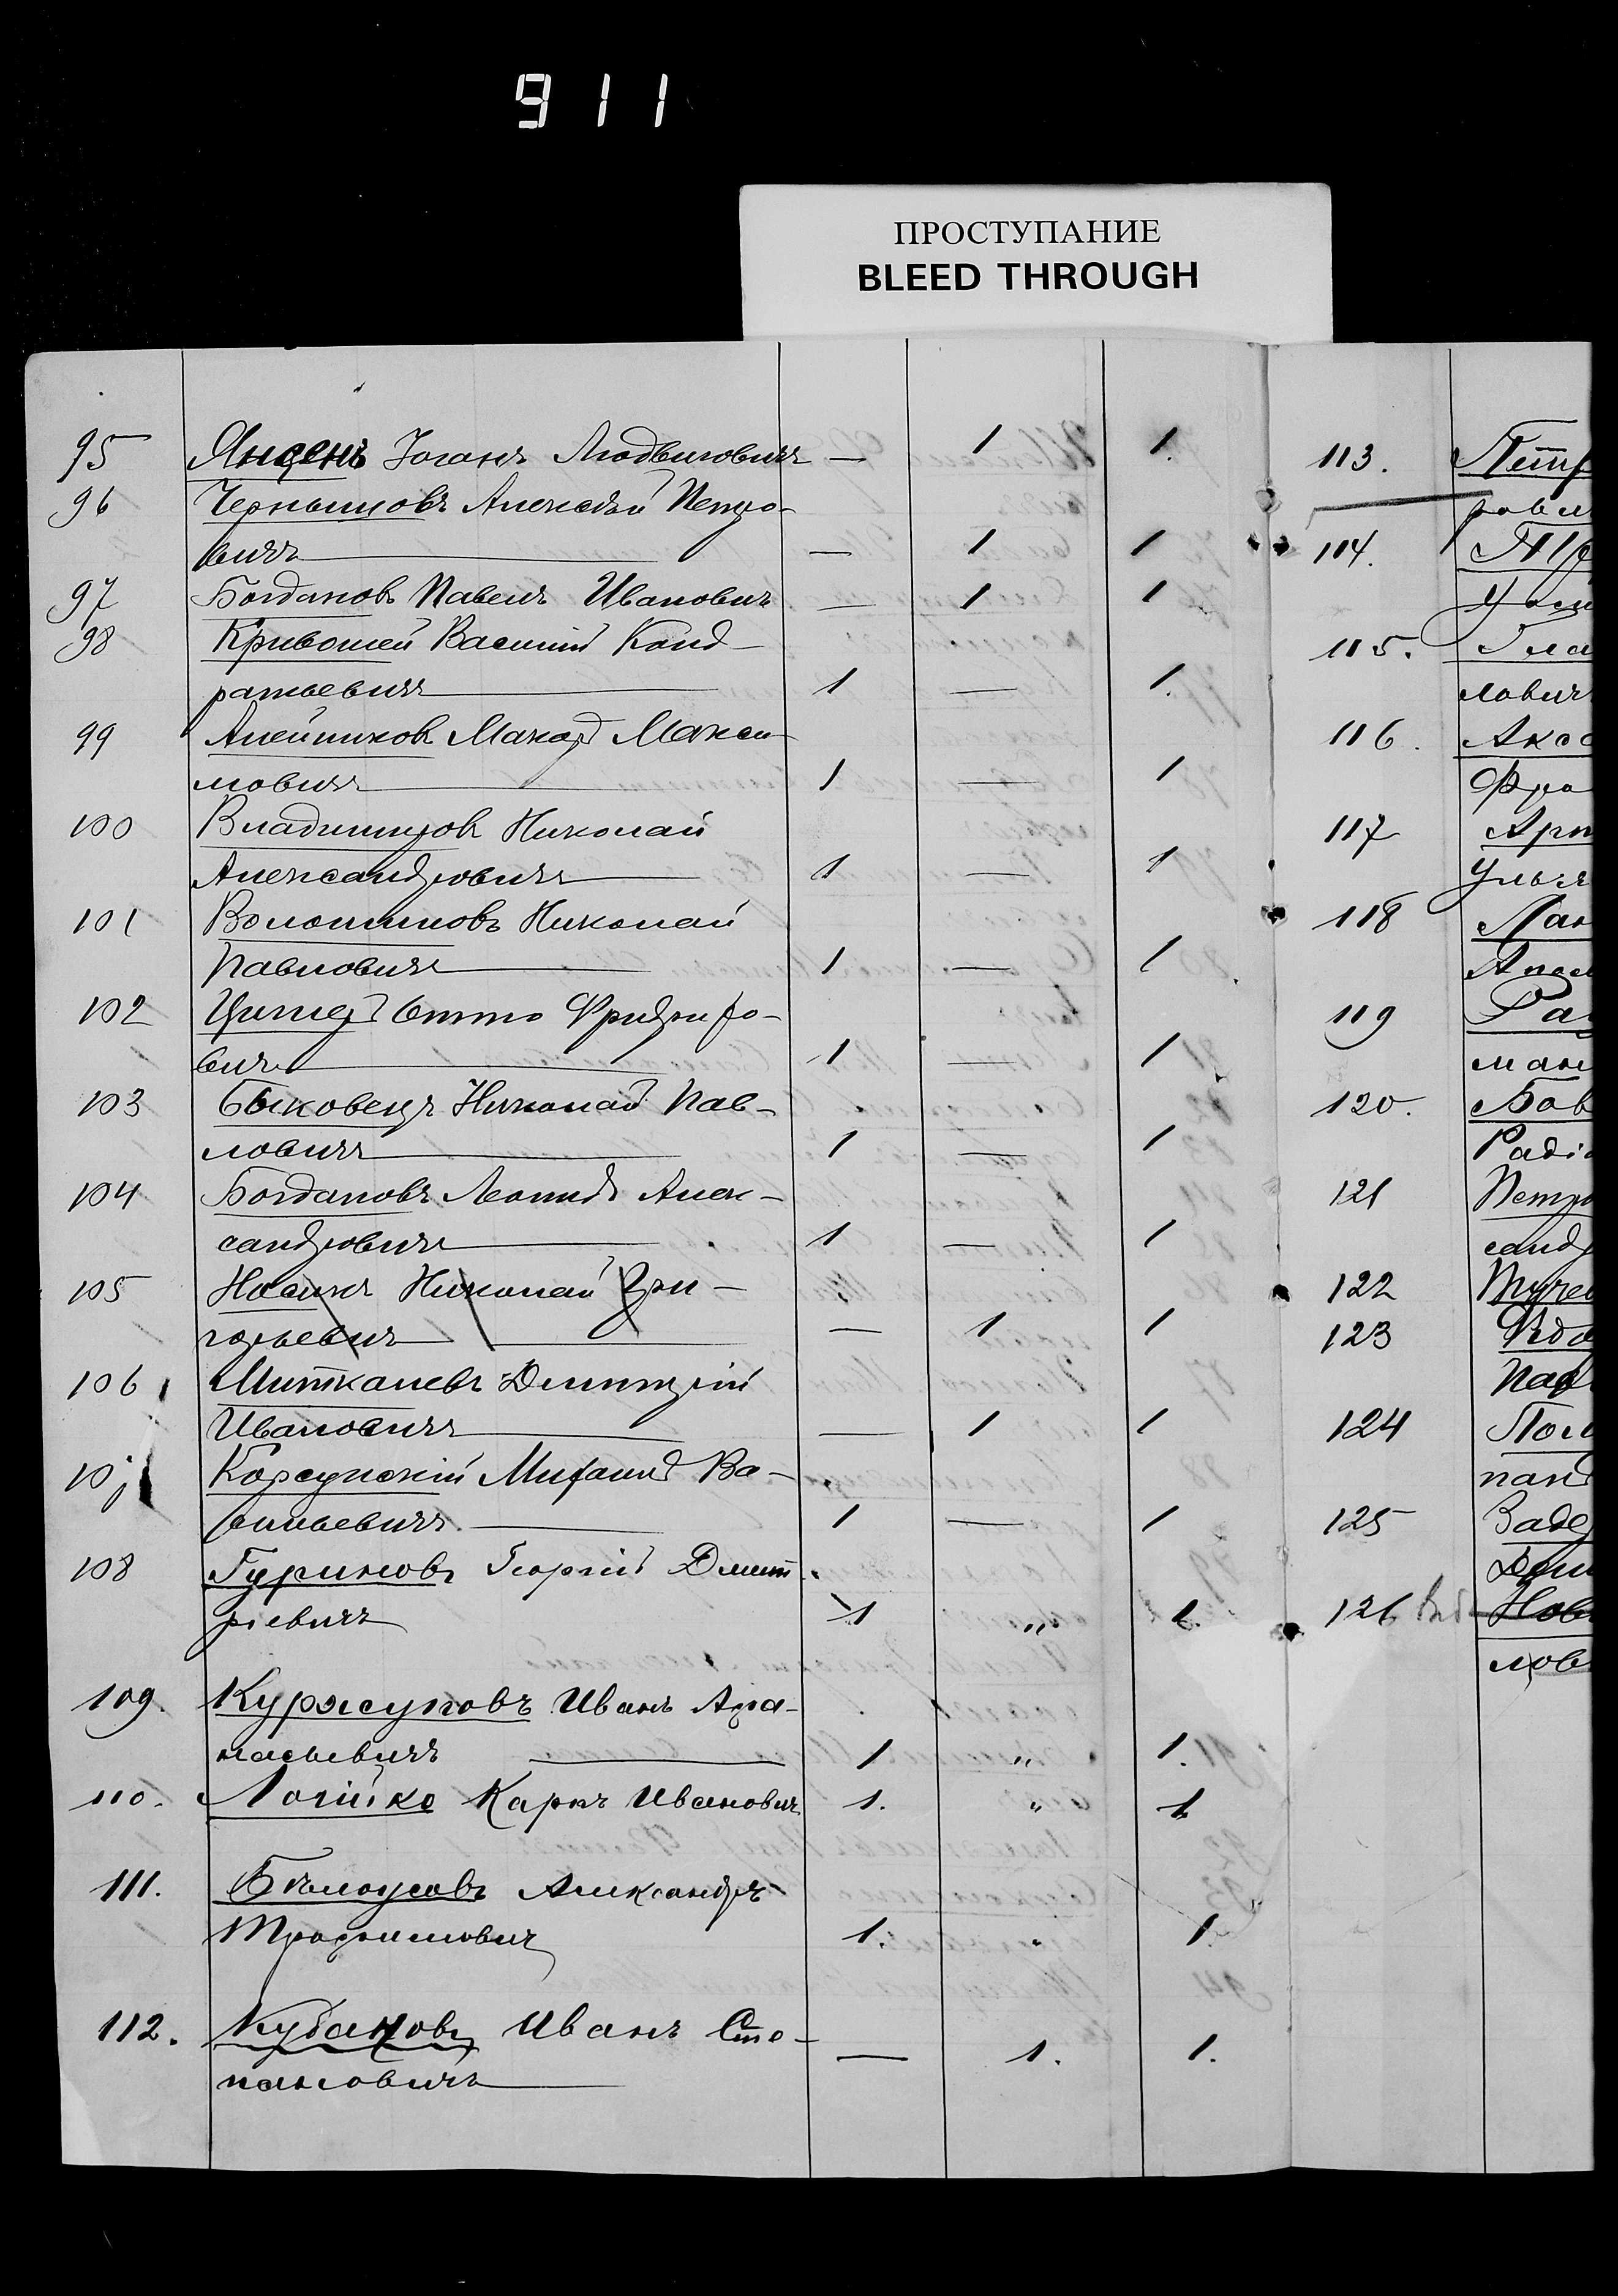 911
ПРОСТУПАНИЕ
BLEED THROUGH
95 Янценъ Іоганъ Людвиговичъ — 1 1.
96 Чернышовъ Алексѣй Петро-
вичъ — 1 1
97 Богдановъ Павелъ Ивановичъ — 1 1
98 Кривошей Василій Конд-
ратьевичъ 1 — 1.
99 Алейниковъ Макаръ Макси-
мовичъ 1 — 1
100 Владимировъ Николай
Александровичъ 1 — 1
101 Волошиновъ Николай
Павловичъ 1 — 1
102 Отто Фридрихо-
вичъ 1 — 1
103 Быковецъ Николай Пав-
ловичъ 1 — 1
104 Богдановъ Леонидъ Алек-
сандровичъ 1 — 1
105 Носикъ Николай Гри-
горьевичъ — 1 1
106 Миткалевъ Дмитрій
Ивановичъ — 1 1
107 Корсунскій Михаилъ Ва-
сильевичъ 1 — 1
108 Гуриновъ Георгій Дмит-
ріевичъ 1 „ 1.
109. Куржсуповъ Иванъ Афа-
насьевичъ 1 „ 1.
110. Карпъ Ивановичъ 1. „ 1
111. Бѣлоусовъ Александръ
Трофимовичъ 1. „ 1
112. Кубановъ Иванъ Сте-
пановичъ — 1. 1.
113. Петр
ровичъ
114. Пр
115. Гла
ловичъ
116. Акс
Фро
117 Арт
Улья
118 Лан
119 Ра
ман
120. Бов
Радіо
121 Петро
санд
122
123
Пав
124 Пол
пан
125
126 Нов
лов